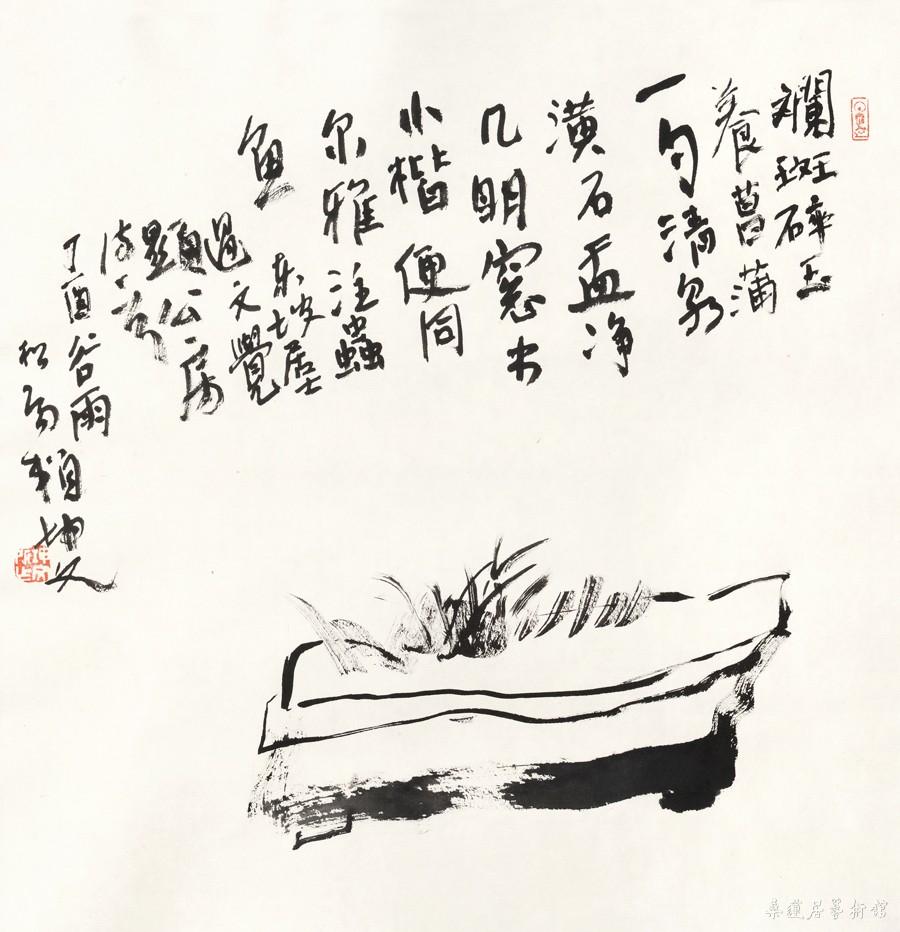 斕斑碎玉
養菖蒲
一勺清泉
满石盂净
几明窓书
小楷便同
尔雅注蟲
魚
東坡居士
過文覺
顯公房
诗
丁酉谷雨
松 坤父
桑蓮居藝術館